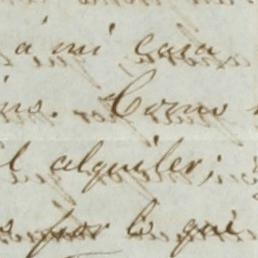 á mi casa
ins. Como
l alquiler;
s por lo que